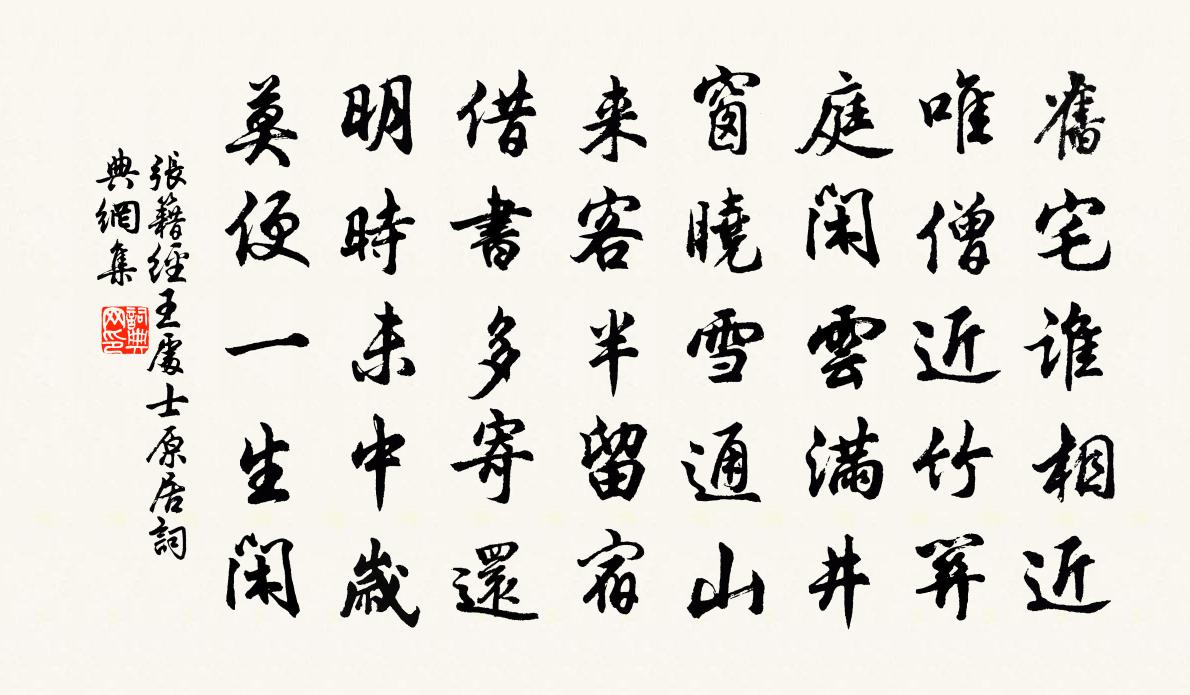 舊宅誰相近
唯僧近竹關
庭閑雲滿井
窗曉雪通山
来客半留宿
借書多寄還
明時未中歲
莫便一生閑
張籍經王處士原居詞
典網集
詞典
网印